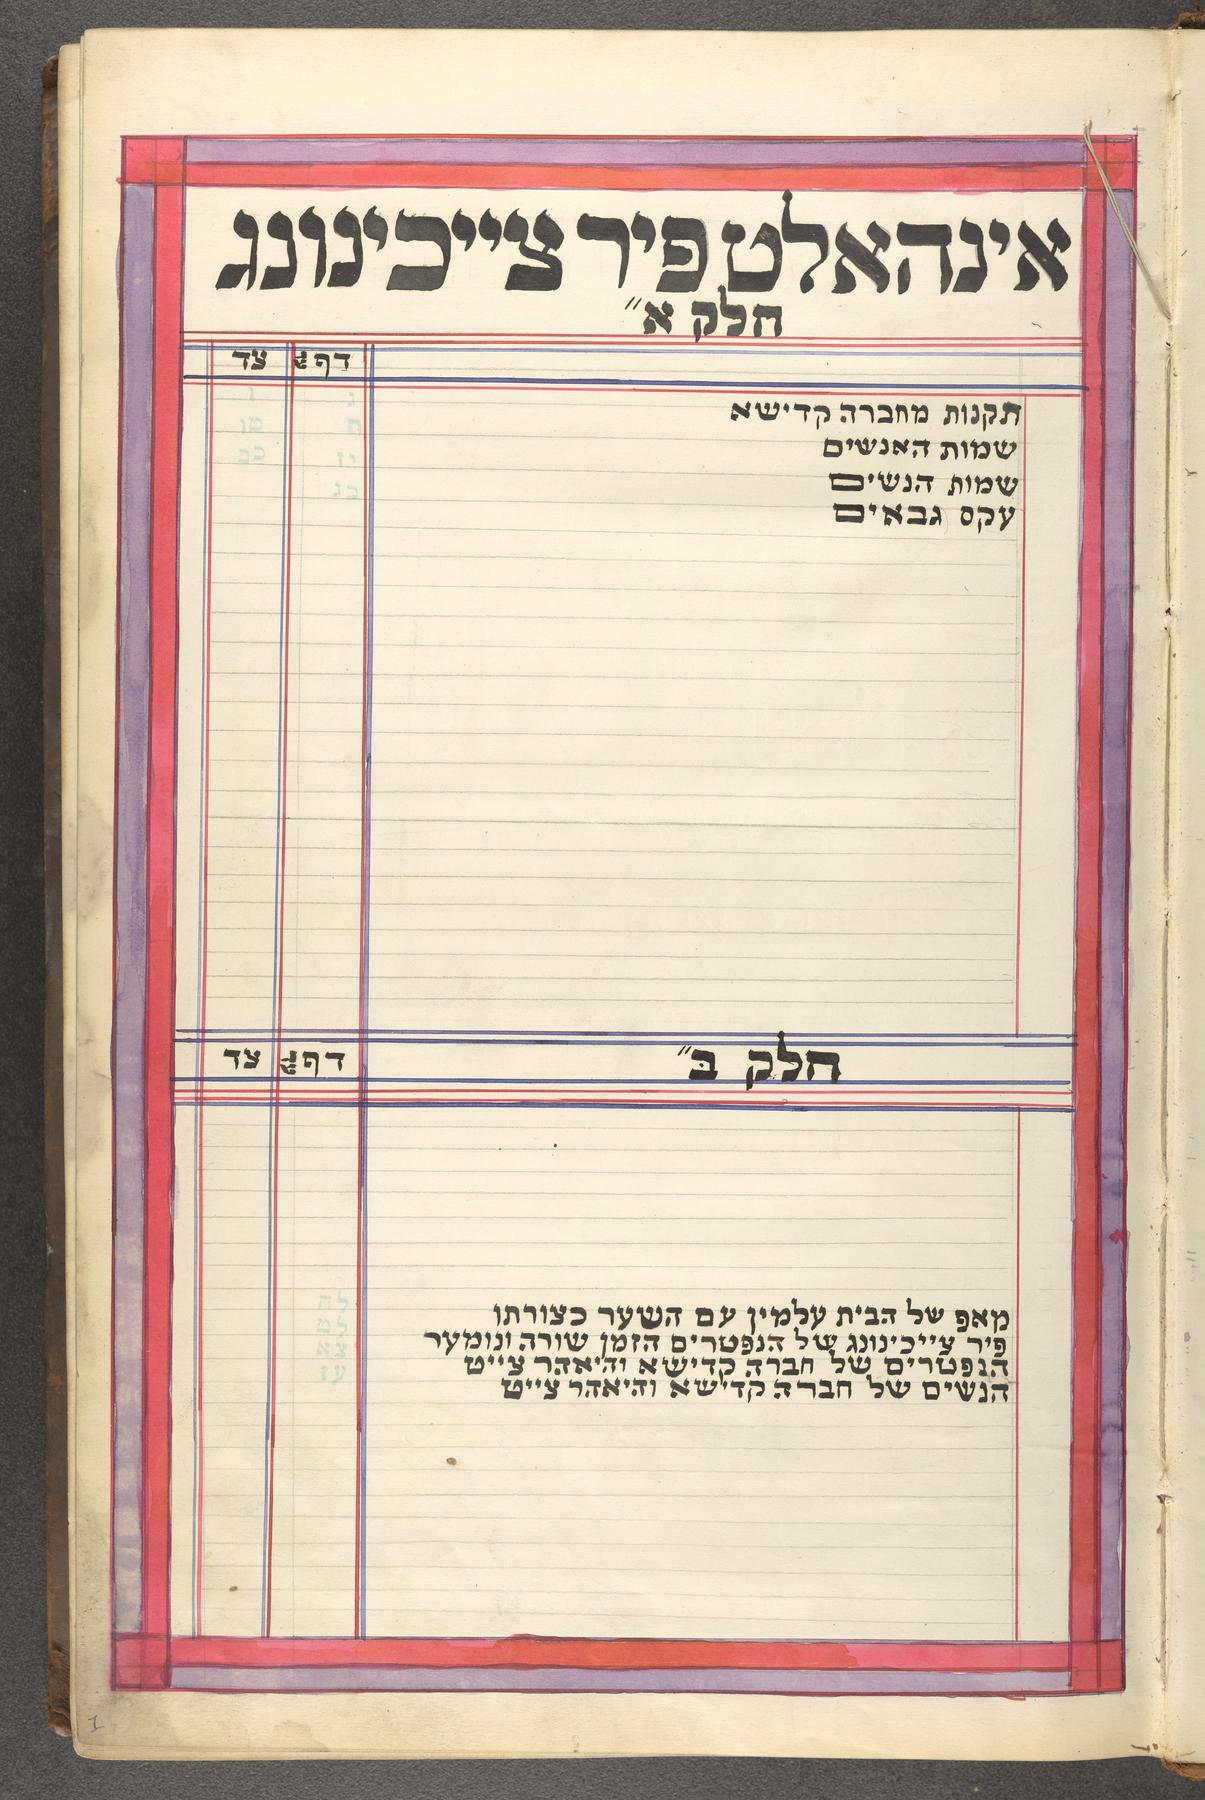 אינהאלט פיר צייכינונג
חלק א"
דף צד
תקנות מחברה קדישא ג ו
שמות האנשים ח טו
שמות הנשים יז כב
עקס גבאים כג
חלק ב" דף צד
מאפ של הבית עלמין עם השער כצורתו לח
פיר צייכינונג של הנפטרים הזמן שורה ונומער לט
הנפטרים של חברה קדישא והיאהר צייט צא
הנשים של חברה קדישא והיאהר צייט עז
1